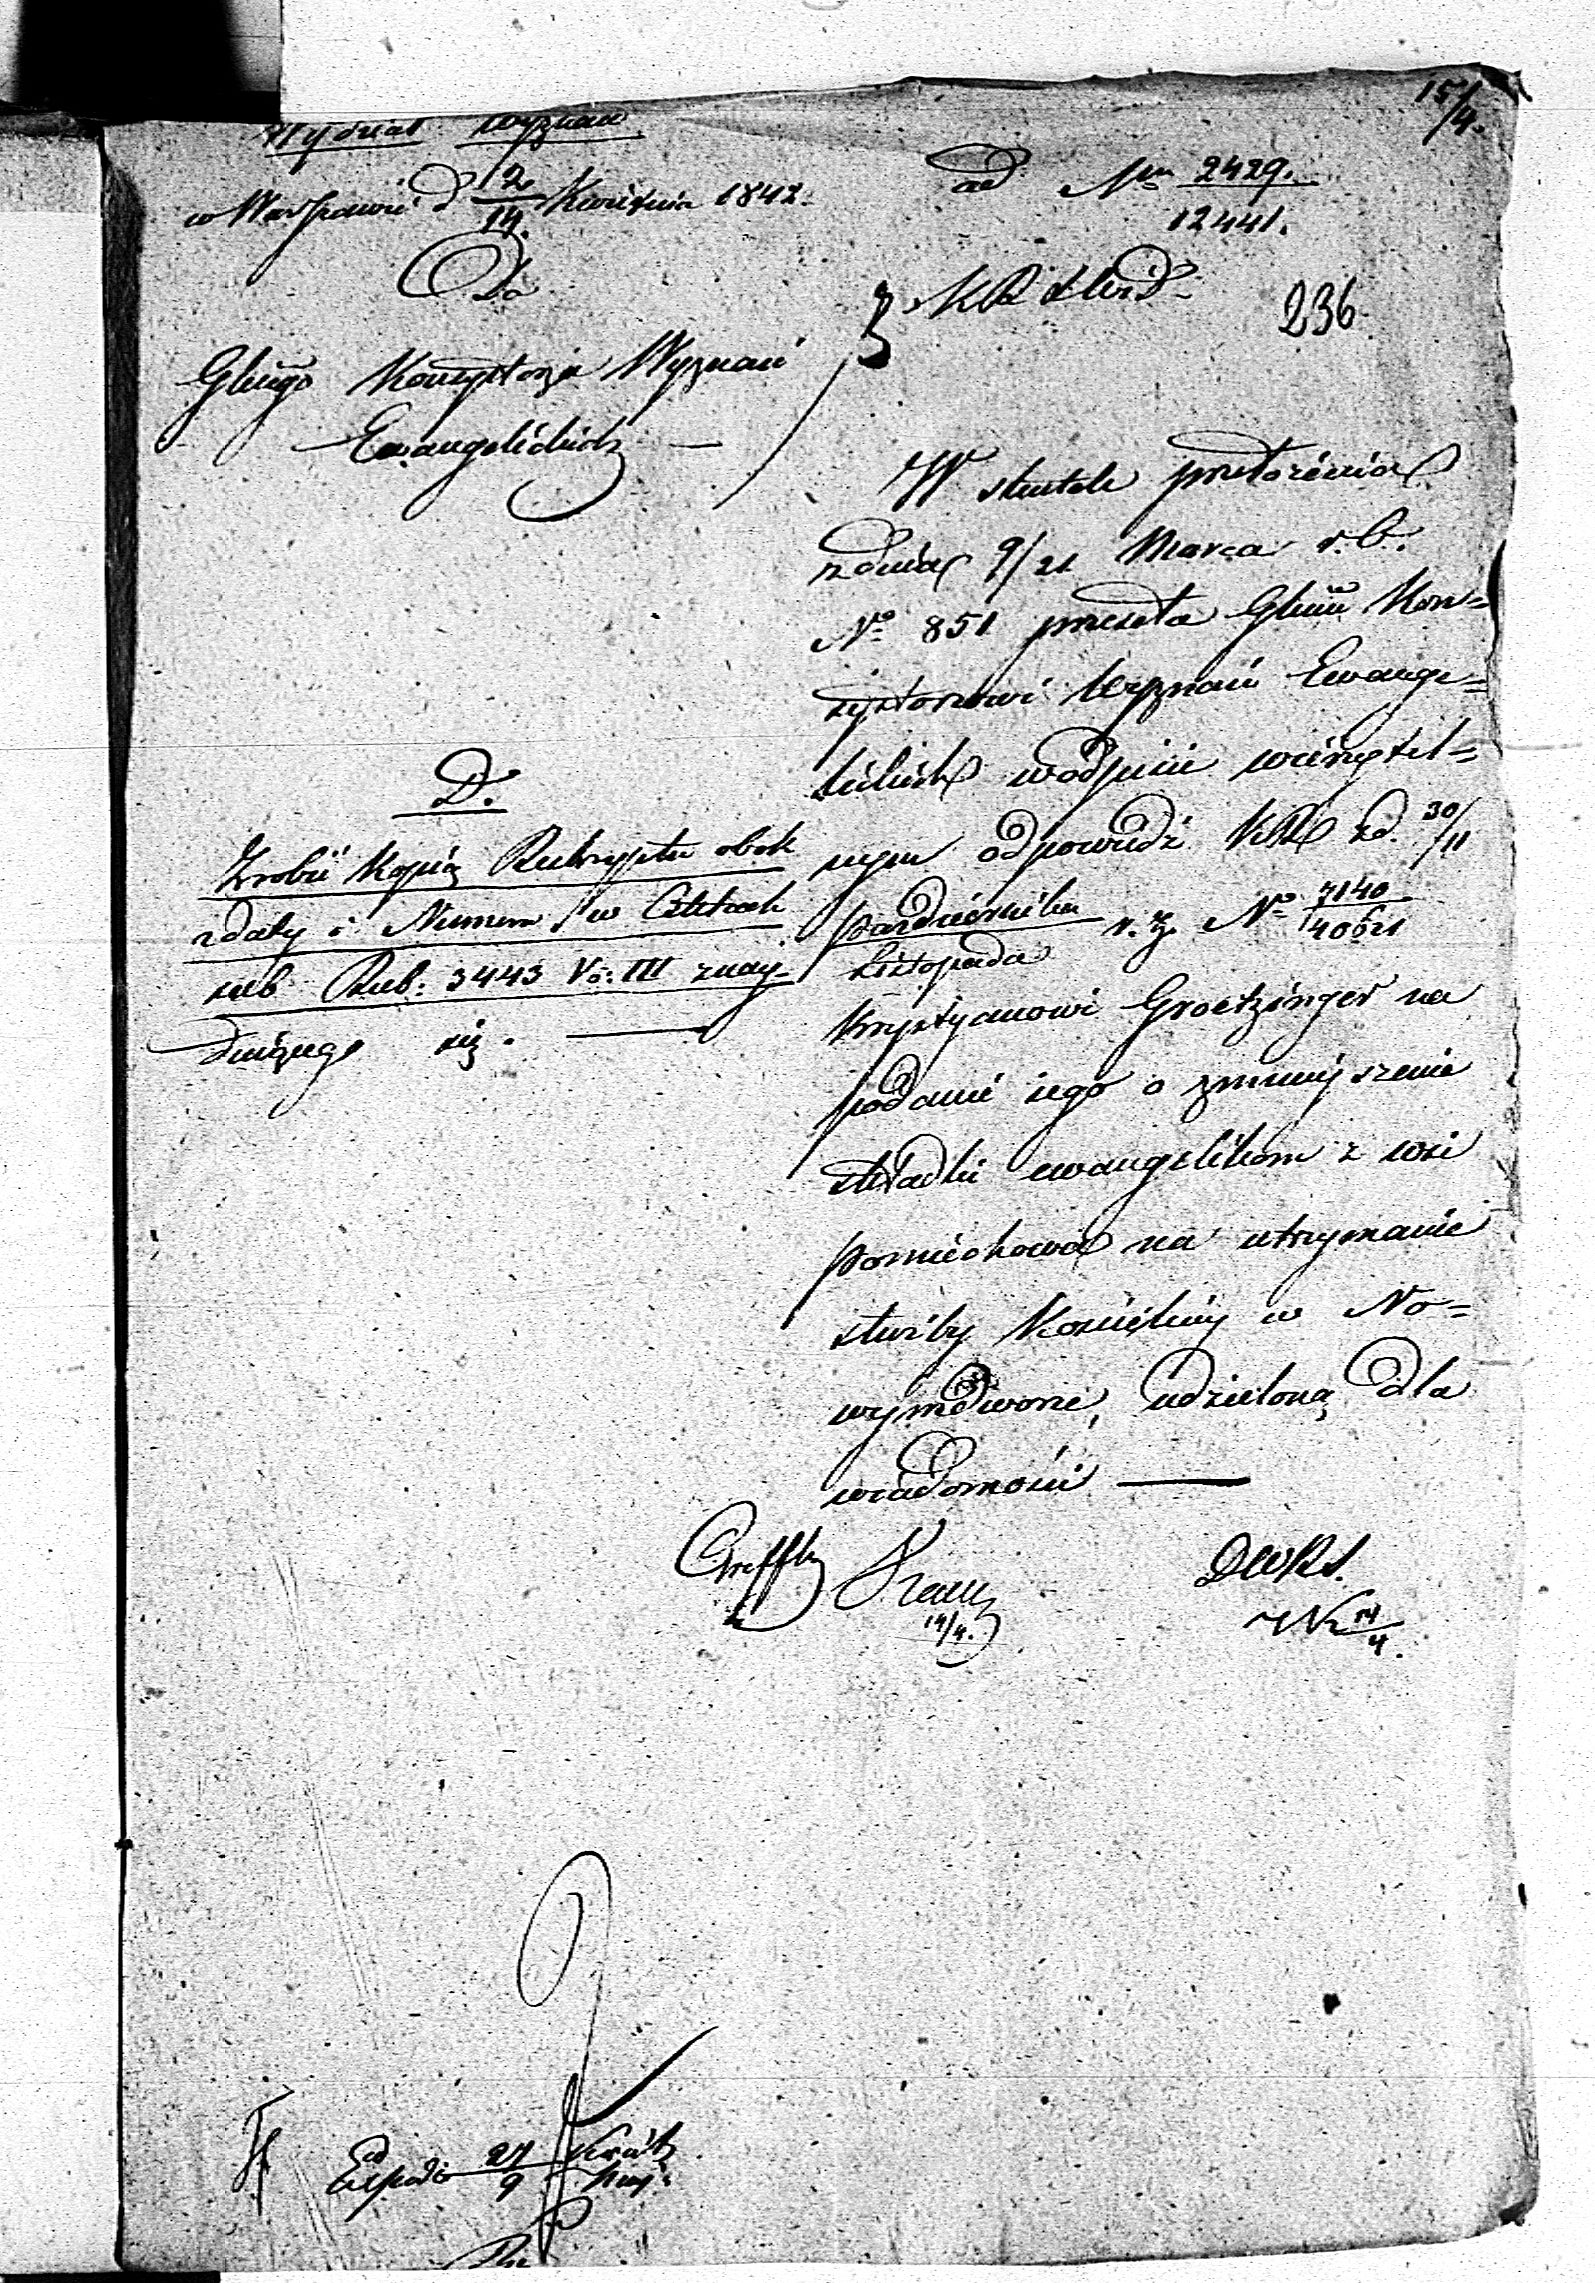 15/4.
Wydział Wyznań
w Warszawie d 2/14. Kwietnia 1842.
ad Nrm 2429./12441.
Do
KRSWiD
236
Głłgo Konsystorza Wyznań
Ewangelickich —
W skutek przełożenia
z dnia 9/21 Marca r. b.
No 851 przesyła Głmu Kon=
systorzowi Wyznań Ewange=
lickich w odpisie wierzytel=
nym odpowiedź KR z d. 30/11
Października/Listopada r. z. No 7140/40621
Krystyanowi Groetzinger na
podanie iego o zmnieyszenie
składki ewangelikom z wsi
Pomiechowa na utrzymanie
służby Kościelney w No=
wymdworze, udzieloną dla
wiadomości —
D.
Zrobić kopią Reskryptu obok
z daty i Numeru w Aktach
sub Rub: 3443 Vo: III znay-
duiącego się. —
14/4.
14/4.
Exped 27/9